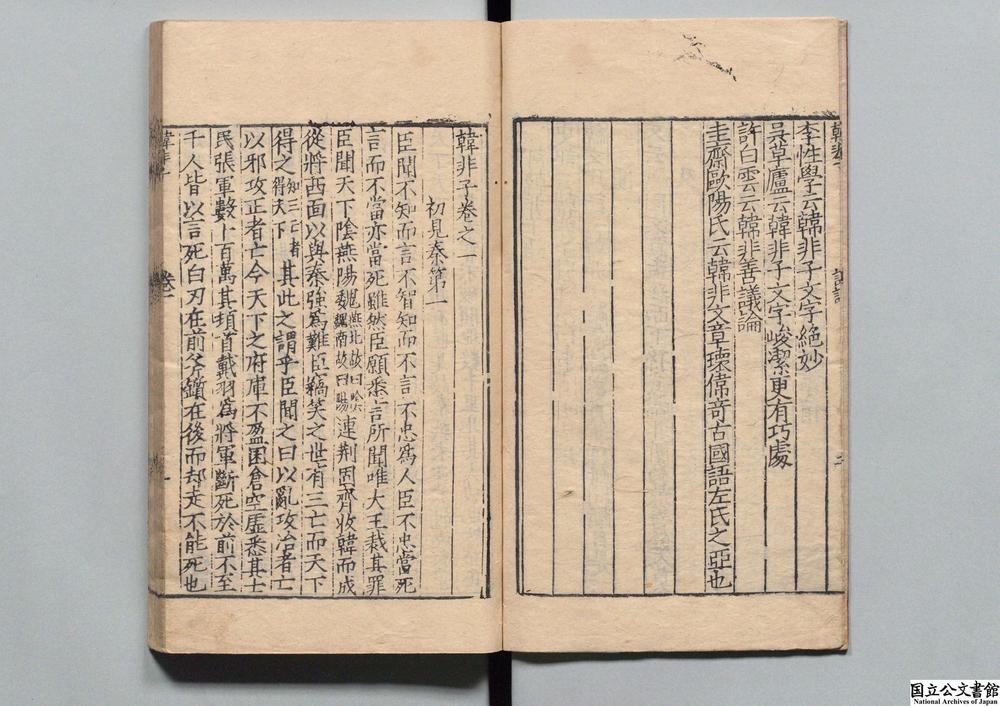 李性學云韓非子文字絶妙
吳草廬云韓非子文字峻潔更有巧處
許白雲云韓非善議論
圭齋歐陽氏云韓非文章瓌偉奇古國語左氏之亞也
韓非子卷之一
初見秦第一
臣聞不知而言不智知而不言不忠爲人臣不忠當死
言而不當亦當死雖然臣願悉言所聞唯大王裁其罪
臣聞天下陰燕陽魏燕北故曰陰魏南故曰陽連荆固齊收韓而成
從將西面以與秦強爲難臣竊笑之世有三亡而天下
得之知三亡者得天下其此之謂乎臣聞之曰以亂攻治者亡
以邪攻正者亡今天下之府庫不盈囷倉空虛悉其士
民張軍數十百萬其頓首戴羽爲將軍斷死於前不至
千人皆以言死白刃在前斧鑕在後而却走不能死也
卷一
国立公文書館
National Archives of Japan